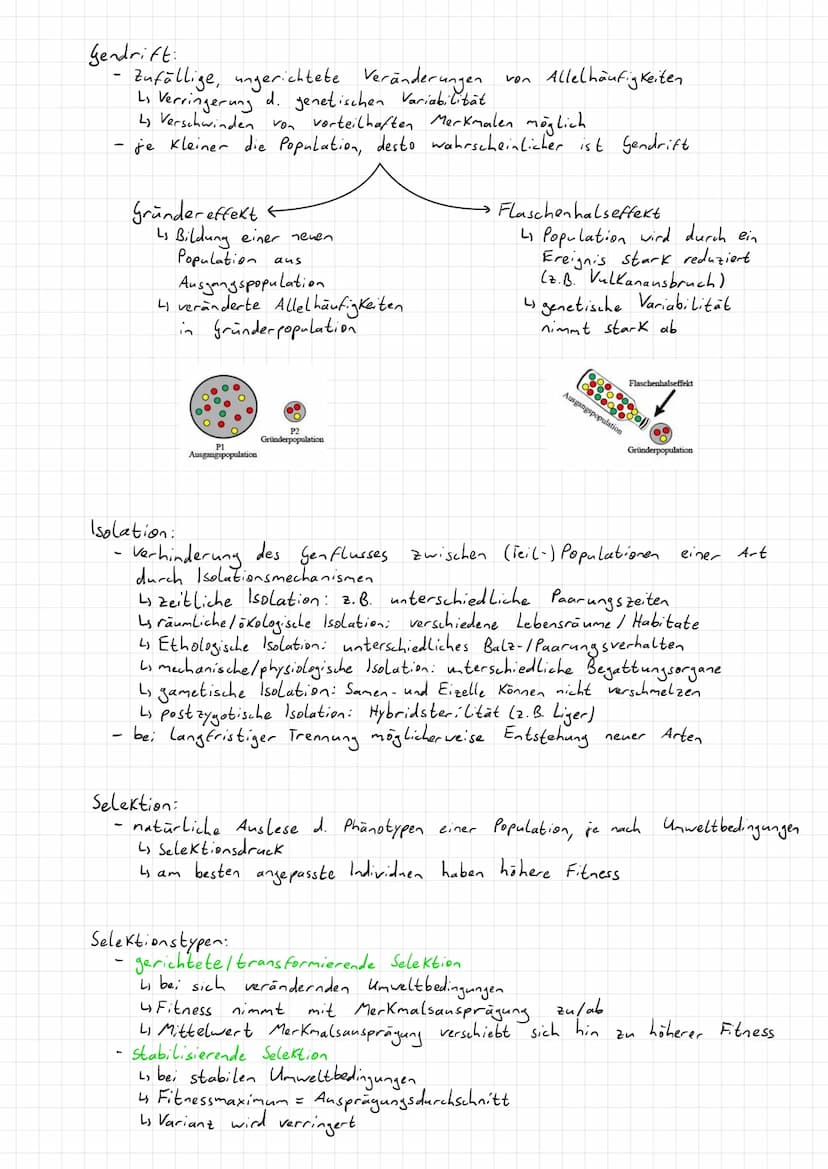 Gendrift:
- zufällige, ungerichtete Veränderungen von Allelhäufigkeiten
↳ Verringerung d. genetischen Variabilität
↳ Verschwinden von vorteilhaften Merkmalen möglich
- je kleiner die Population, desto wahrscheinlicher ist Gendrift
Gründereffekt
↳ Bildung einer neuen
Population aus
Ausgangspopulation
↳ veränderte Allelhäufigkeiten
in Gründerpopulation
Flaschenhalseffekt
↳ Population wird durch ein
Ereignis stark reduziert
(z.B. Vulkanausbruch)
↳ genetische Variabilität
nimmt stark ab
P1
Ausgangspopulation
P2
Gründerpopulation
Flaschenhalseffekt
Ausgangspopulation
Gründerpopulation
Isolation:
- Verhinderung des Genflusses zwischen (Teil-) Populationen einer Art
durch Isolationsmechanismen
↳ zeitliche Isolation: z.B. unterschiedliche Paarungszeiten
↳ räumliche/ökologische Isolation: verschiedene Lebensräume / Habitate
↳ Ethologische Isolation: unterschiedliches Balz-/Paarungsverhalten
↳ mechanische/physiologische Isolation: unterschiedliche Begattungsorgane
↳ gametische Isolation: Samen- und Eizelle können nicht verschmelzen
↳ postzygotische Isolation: Hybridsterilität (z.B. Liger)
- bei langfristiger Trennung möglicherweise Entstehung neuer Arten
Selektion:
- natürliche Auslese d. Phänotypen einer Population, je nach Umweltbedingungen
↳ Selektionsdruck
↳ am besten angepasste Individuen haben höhere Fitness
Selektionstypen:
- gerichtete/transformierende Selektion
↳ bei sich verändernden Umweltbedingungen
↳ Fitness nimmt mit Merkmalsausprägung zu/ab
↳ Mittelwert Merkmalsausprägung verschiebt sich hin zu höherer Fitness
- stabilisierende Selektion
↳ bei stabilen Umweltbedingungen
↳ Fitnessmaximum = Ausprägungsdurchschnitt
↳ Varianz wird verringert